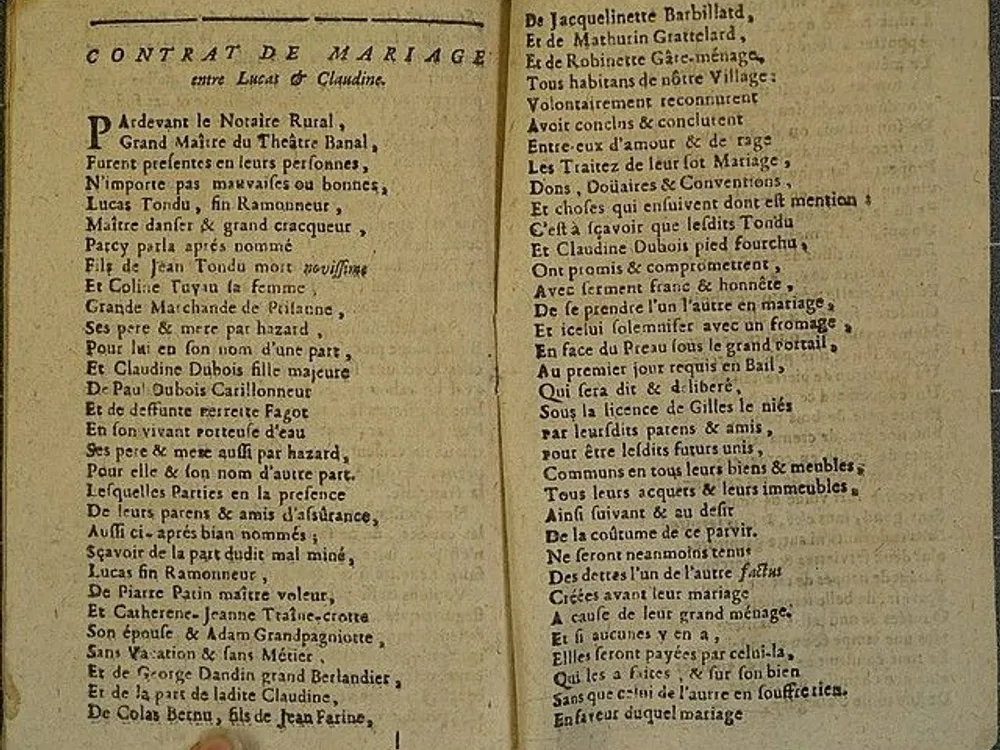 CONTRAT DE MARIAGE
entre Lucas & Claudine.
PArdevant le Notaire Rural,
Grand Maître du Theâtre Banal,
Furent preſentes en leurs perſonnes,
N'importe pas mauvaiſes ou bonnes,
Lucas Tondu, fin Ramonneur,
Maître danſer & grand cracqueur,
Parcy parla aprés nommé
Fils de Jean Tondu mort noviſſime
Et Coline Tuyau ſa femme,
Grande Marchande de Ptiſanne,
Ses pere & mere par hazard,
Pour lui en ſon nom d'une part,
Et Claudine Dubois fille majeure
De Paul Dubois Carillonneur
Et de deffunte Perrette Fagot
En ſon vivant Porteuſe d'eau
Ses pere & mere auſſi par hazard,
Pour elle & ſon nom d'autre part.
Leſquelles Parties en la preſence
De leurs parens & amis d'aſsûrance,
Auſſi ci-aprés bian nommés;
Sçavoir de la part dudit mal miné,
Lucas fin Ramonneur,
De Piarre Patin maître voleur,
Et Catherene-Jeanne Traîne-crotte
Son épouſe & Adam Grandpagniotte,
Sans Vacation & ſans Métier,
Et de George Dandin grand Berlandier,
Et de la part de ladite Claudine,
De Colas Bernu, fils de Jean Farine,
De Jacquelinette Barbillard,
Et de Mathurin Grattelard,
Et de Robinette Gâte-ménage,
Tous habitans de nôtre Village:
Volontairement reconnurent
Avoir conclus & conclutent
Entre-eux d'amour & de rage
Les Traitez de leur ſot Mariage,
Dons, Doüaires & Conventions,
Et choſes qui enſuivent dont eſt mention:
C'eſt à ſçavoir que leſdits Tondu
Et Claudine Dubois pied fourchu,
Ont promis & compromettent,
Avec ſerment franc & honnête,
De ſe prendre l'un l'autre en mariage,
Et icelui ſolemniſer avec un fromage,
En face du Preau ſous le grand Portail,
Au premier jour requis en Bail,
Qui ſera dit & deliberé,
Sous la licence de Gilles le niés
Par leurſdits parens & amis,
Pour être leſdits futurs unis,
Communs en tous leurs biens & meubles,
Tous leurs acquets & leurs immeubles,
Ainſi ſuivant & au deſir
De la coûtume de ce parvir.
Ne ſeront neanmoins tenus
Des dettes l'un de l'autre factus
Créées avant leur mariage
A cauſe de leur grand ménage.
Et ſi aucunes y en a,
Ellles ſeront payées par celui-la,
Qui les a faites, & ſur ſon bien
Sans que celui de l'autre en ſouffre rien.
En faveur duquel mariage